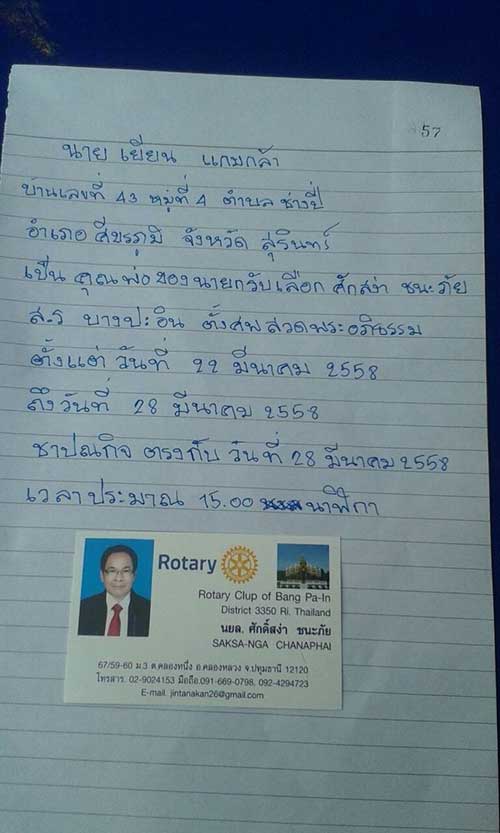 57
นาย เยียน แกมกล้า
บ้านเลขที่ 43 หมู่ที่ 4 ตำบล ช่างปี่
อำเภอ ศีขรภูมิ จังหวัด สุรินทร์
เป็น คุณพ่อ ของ นายกรับเลือก ศักสง่า ชนะภัย
ส-ร บางปะอิน ตั้งศพ สวดพระอภิธรรม
ตั้งแต่ วันที่ 22 มีนาคม 2558
ถึงวันที่ 28 มีนาคม 2558
ฌาปณกิจ ตรงกับ วันที่ 28 มีนาคม 2558
เวลาประมาณ 15.00 นาฬิกา
Rotary
Rotary Clup of Bang Pa-In
District 3350 Ri. Thailand
นยล. ศักดิ์สง่า ชนะภัย
SAKSA-NGA CHANAPHAI
67/59-60 ม.3 ต.คลองหนึ่ง อ.คลองหลวง จ.ปทุมธานี 12120
โทรสาร. 02-9024153 มือถือ.091-669-0798, 092-4294723
E-mail. jintanakan26@gmail.com